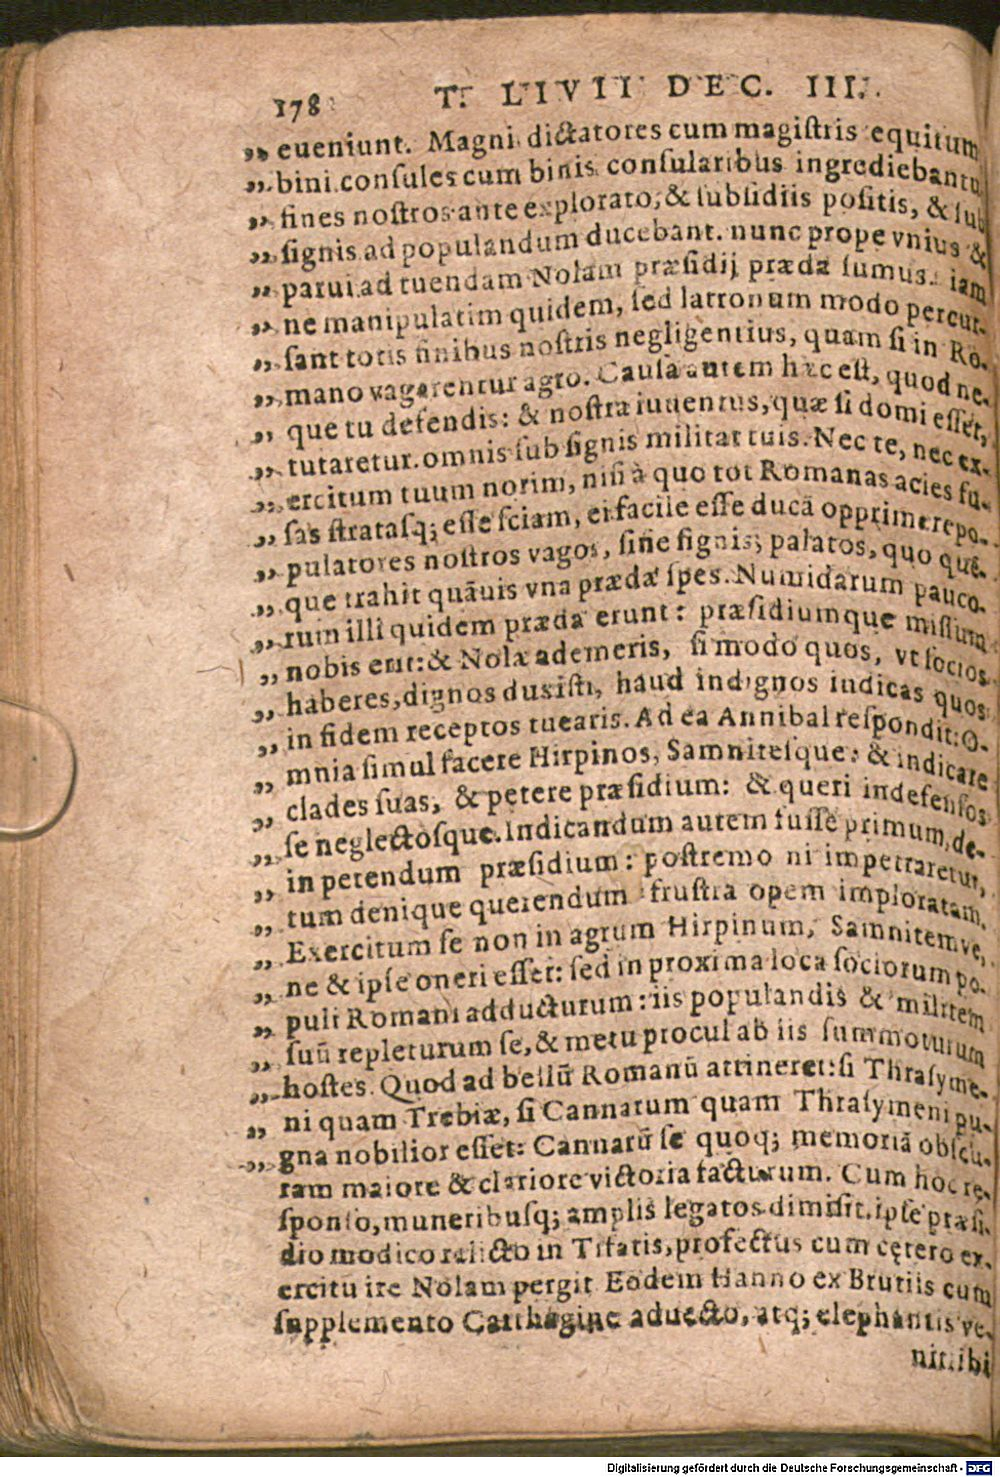 178 T. LIVII DEC. III.
„ eueniunt. Magni dictatores cum magistris equitum
„ bini consules cum binis consularibus ingrediebantur
„ fines nostros ante explorato, & subsidiis positis, & sub
„ signis ad populandum ducebant. nunc prope vnius &
„ parui ad tuendam Nolam præsidij præda sumus. iam
„ ne manipulatim quidem, sed latronum modo percur-
„ sant totis finibus nostris negligentius, quam si in Ro-
„ mano vagarentur agro. Causa autem hæc est, quod ne-
„ que tu defendis: & nostra iuuentus, quæ si domi esset,
„ tutaretur. omnis sub signis militat tuis. Nec te, nec ex-
„ ercitum tuum norim, nisi à quo tot Romanas acies fu-
„ sas stratasq; esse sciam, ei facile esse ducā opprimere po-
„ pulatores nostros vagos, sine signis, palatos, quo quē-
„ que trahit quāuis vna prædæ spes. Numidarum pauco-
„ rum illi quidem præda erunt: præsidiumque missum
„ nobis erit: & Nolæ ademeris, si modo quos, vt socios
„ haberes, dignos duxisti, haud indignos iudicas quos
„ in fidem receptos tuearis. Ad ea Annibal respondit: O-
„ mnia simul facere Hirpinos, Samnitesque: & indicare
„ clades suas, & petere præsidium: & queri indefensos
„ se neglectosque. Indicandum autem fuisse primum, de-
„ in petendum præsidium: postremo ni impetraretur,
„ tum denique querendum frustra opem imploratam.
„ Exercitum se non in agrum Hirpinum, Samnitemve,
„ ne & ipse oneri esset: sed in proxima loca sociorum po-
„ puli Romani adducturum: iis populandis & militem
„ suū repleturum se, & metu procul ab iis summoturum
„ hostes. Quod ad bellū Romanū attineret: si Thrasyme-
„ ni quam Trebiæ, si Cannarum quam Thrasymeni pu-
„ gna nobilior esset: Cannarū se quoq; memoriā obscu-
ram maiore & clariore victoria facturum. Cum hoc re-
sponso, muneribusq; amplis legatos dimisit. ipse præsi-
dio modico relicto in Tifatis, profectus cum cętero ex-
ercitu ire Nolam pergit Eodem Hanno ex Brutiis cum
supplemento Carthagine aduecto, atq; elephantis ve-
nit. ibi
Digitalisierung gefördert durch die Deutsche Forschungsgemeinschaft - DFG